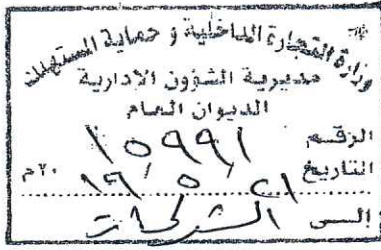 وزارة التجارة الداخلية و حماية المستهلك
مديرية الشؤون الادارية
الديوان العام
الرقم ١٥٩٩١
التاريخ ٢١ / ٥ / ١٩ ٢٠م
الى الشركات